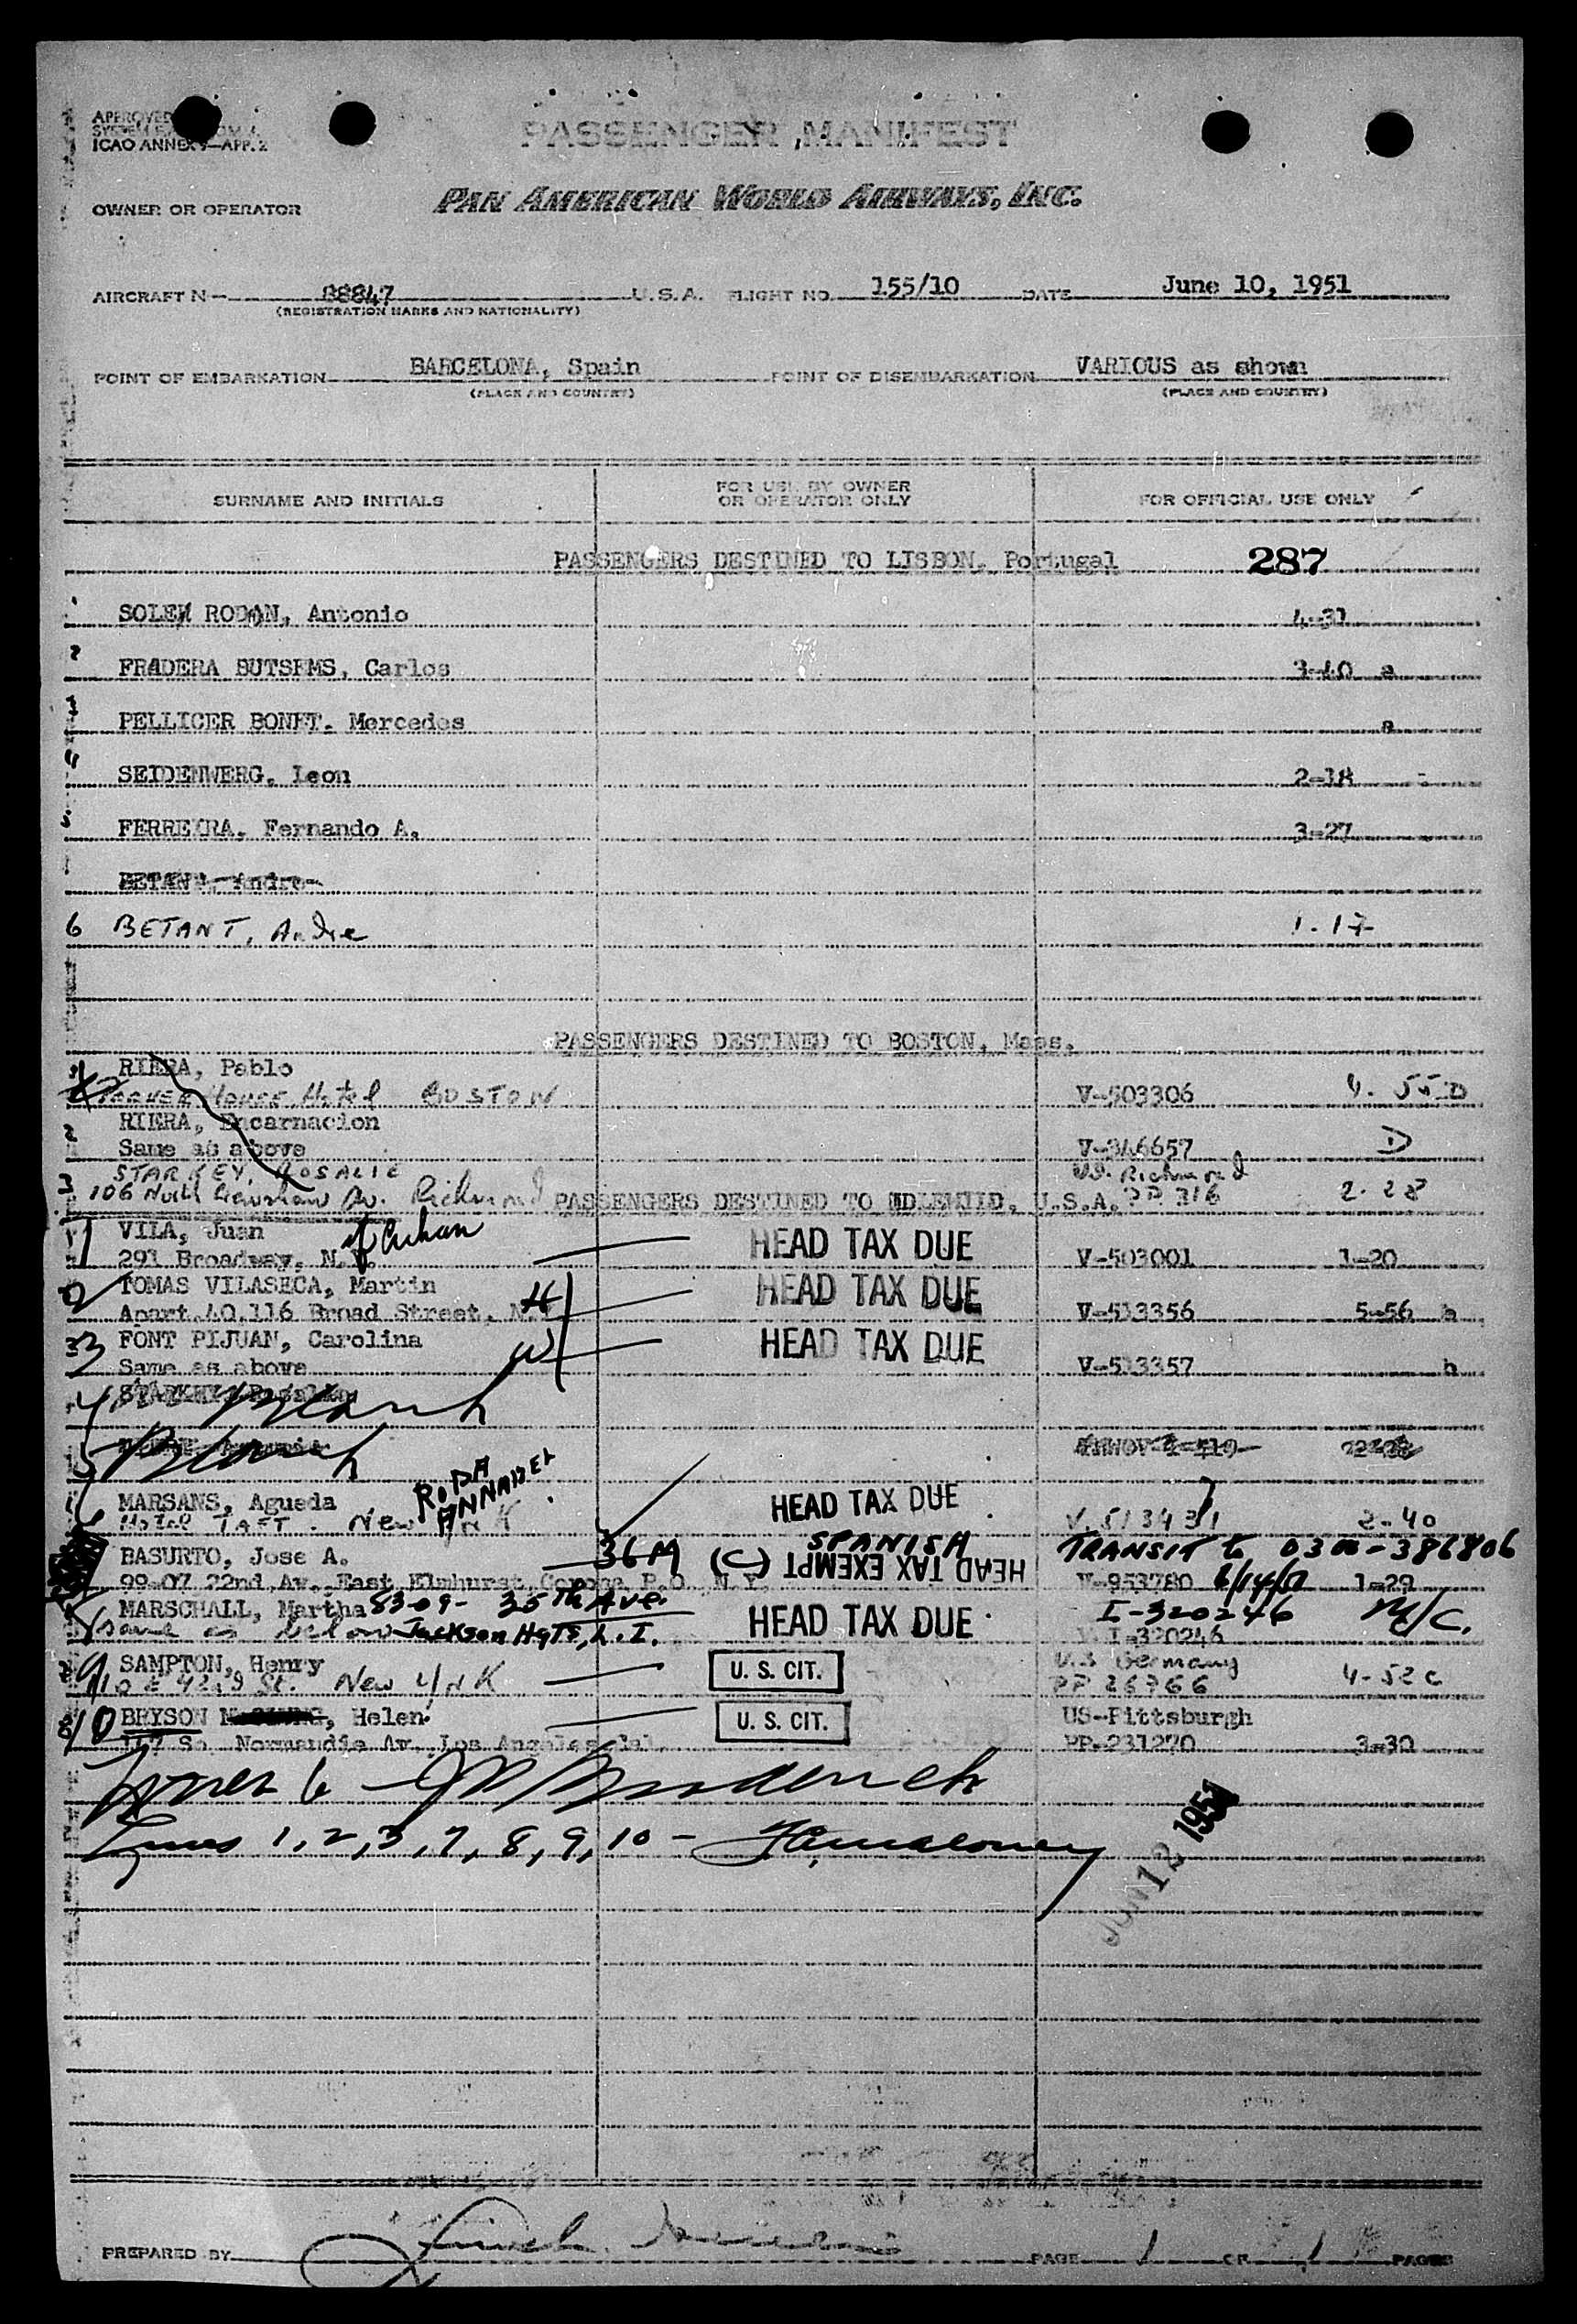 PASSENGER MANIFEST
ICAO ANNEX 9—APP. 2
OWNER OR OPERATOR PAN AMERICAN WORLD AIRWAYS, INC.
AIRCRAFT N— 88847 U.S.A. FLIGHT NO. 155/10 DATE June 10, 1951
(REGISTRATION MARKS AND NATIONALITY)
POINT OF EMBARKATION BARCELONA, Spain POINT OF DISEMBARKATION VARIOUS as shown
(PLACE AND COUNTRY) (PLACE AND COUNTRY)
SURNAME AND INITIALS FOR USE BY OWNER OR OPERATOR ONLY FOR OFFICIAL USE ONLY
PASSENGERS DESTINED TO LISBON, Portugal 287
1 Antonio 4-31
2 FRADERA BUTSEMS, Carlos 3-40 a
3 PELLICER BONET, Mercedes a
4 SEIDENWERG, Leon 2-18
5 FERREIRA, Fernando A. 3-27
BETANT, Andre
6 BETANT, Andre 1.17
PASSENGERS DESTINED TO BOSTON, Mass.
RIERA, Pablo
PARKER HOUSE Hotel BOSTON V-503306 4.55 D
2 RIERA, Encarnacion
Same as above V-346657 D
3 STARKEY, ROSALIE U.S. Richmond
106 North Av. Richmond PP 316 2.28
PASSENGERS DESTINED TO IDLEWILD, U.S.A.
1 VILA, Juan Cuban HEAD TAX DUE
291 Broadway, N.Y. V-503001 1-20
2 TOMAS VILASECA, Martin H HEAD TAX DUE
Apart.40.116 Broad Street, N.Y. V-513356 5-56 b
3 FONT PIJUAN, Carolina W HEAD TAX DUE
Same as above V-513357 b
4 Blank
5 Blank
6 MARSANS, Agueda RODA ANNADEL HEAD TAX DUE
Hotel TAFT. New York V.513431 2-40
BASURTO, Jose A. 36 M (C) SPANISH HEAD TAX EXEMPT TRANSIT to 0300-386806
99-07 22nd Av. East Elmhurst Corona P.O. N.Y. V-953780 6/14/51 1-29
8 MARSCHALL, Martha 8309- 35th Ave. HEAD TAX DUE I-320246 M/C.
Same as below Jackson Hgts, L.I. V.I-320246
9 SAMPTON, Henry U. S. CIT. U.S Germany
110 E 42nd St. New York PP 26766 4-52 c
10 BRYSON, Helen U. S. CIT. US-Pittsburgh
117 So. Normandie Av. Los Angeles Cal. PP-231270 3-30
Lines 1,2,3,7,8,9,10 -
JUN 12 1951
PREPARED BY PAGE 1 OF 1 PAGES